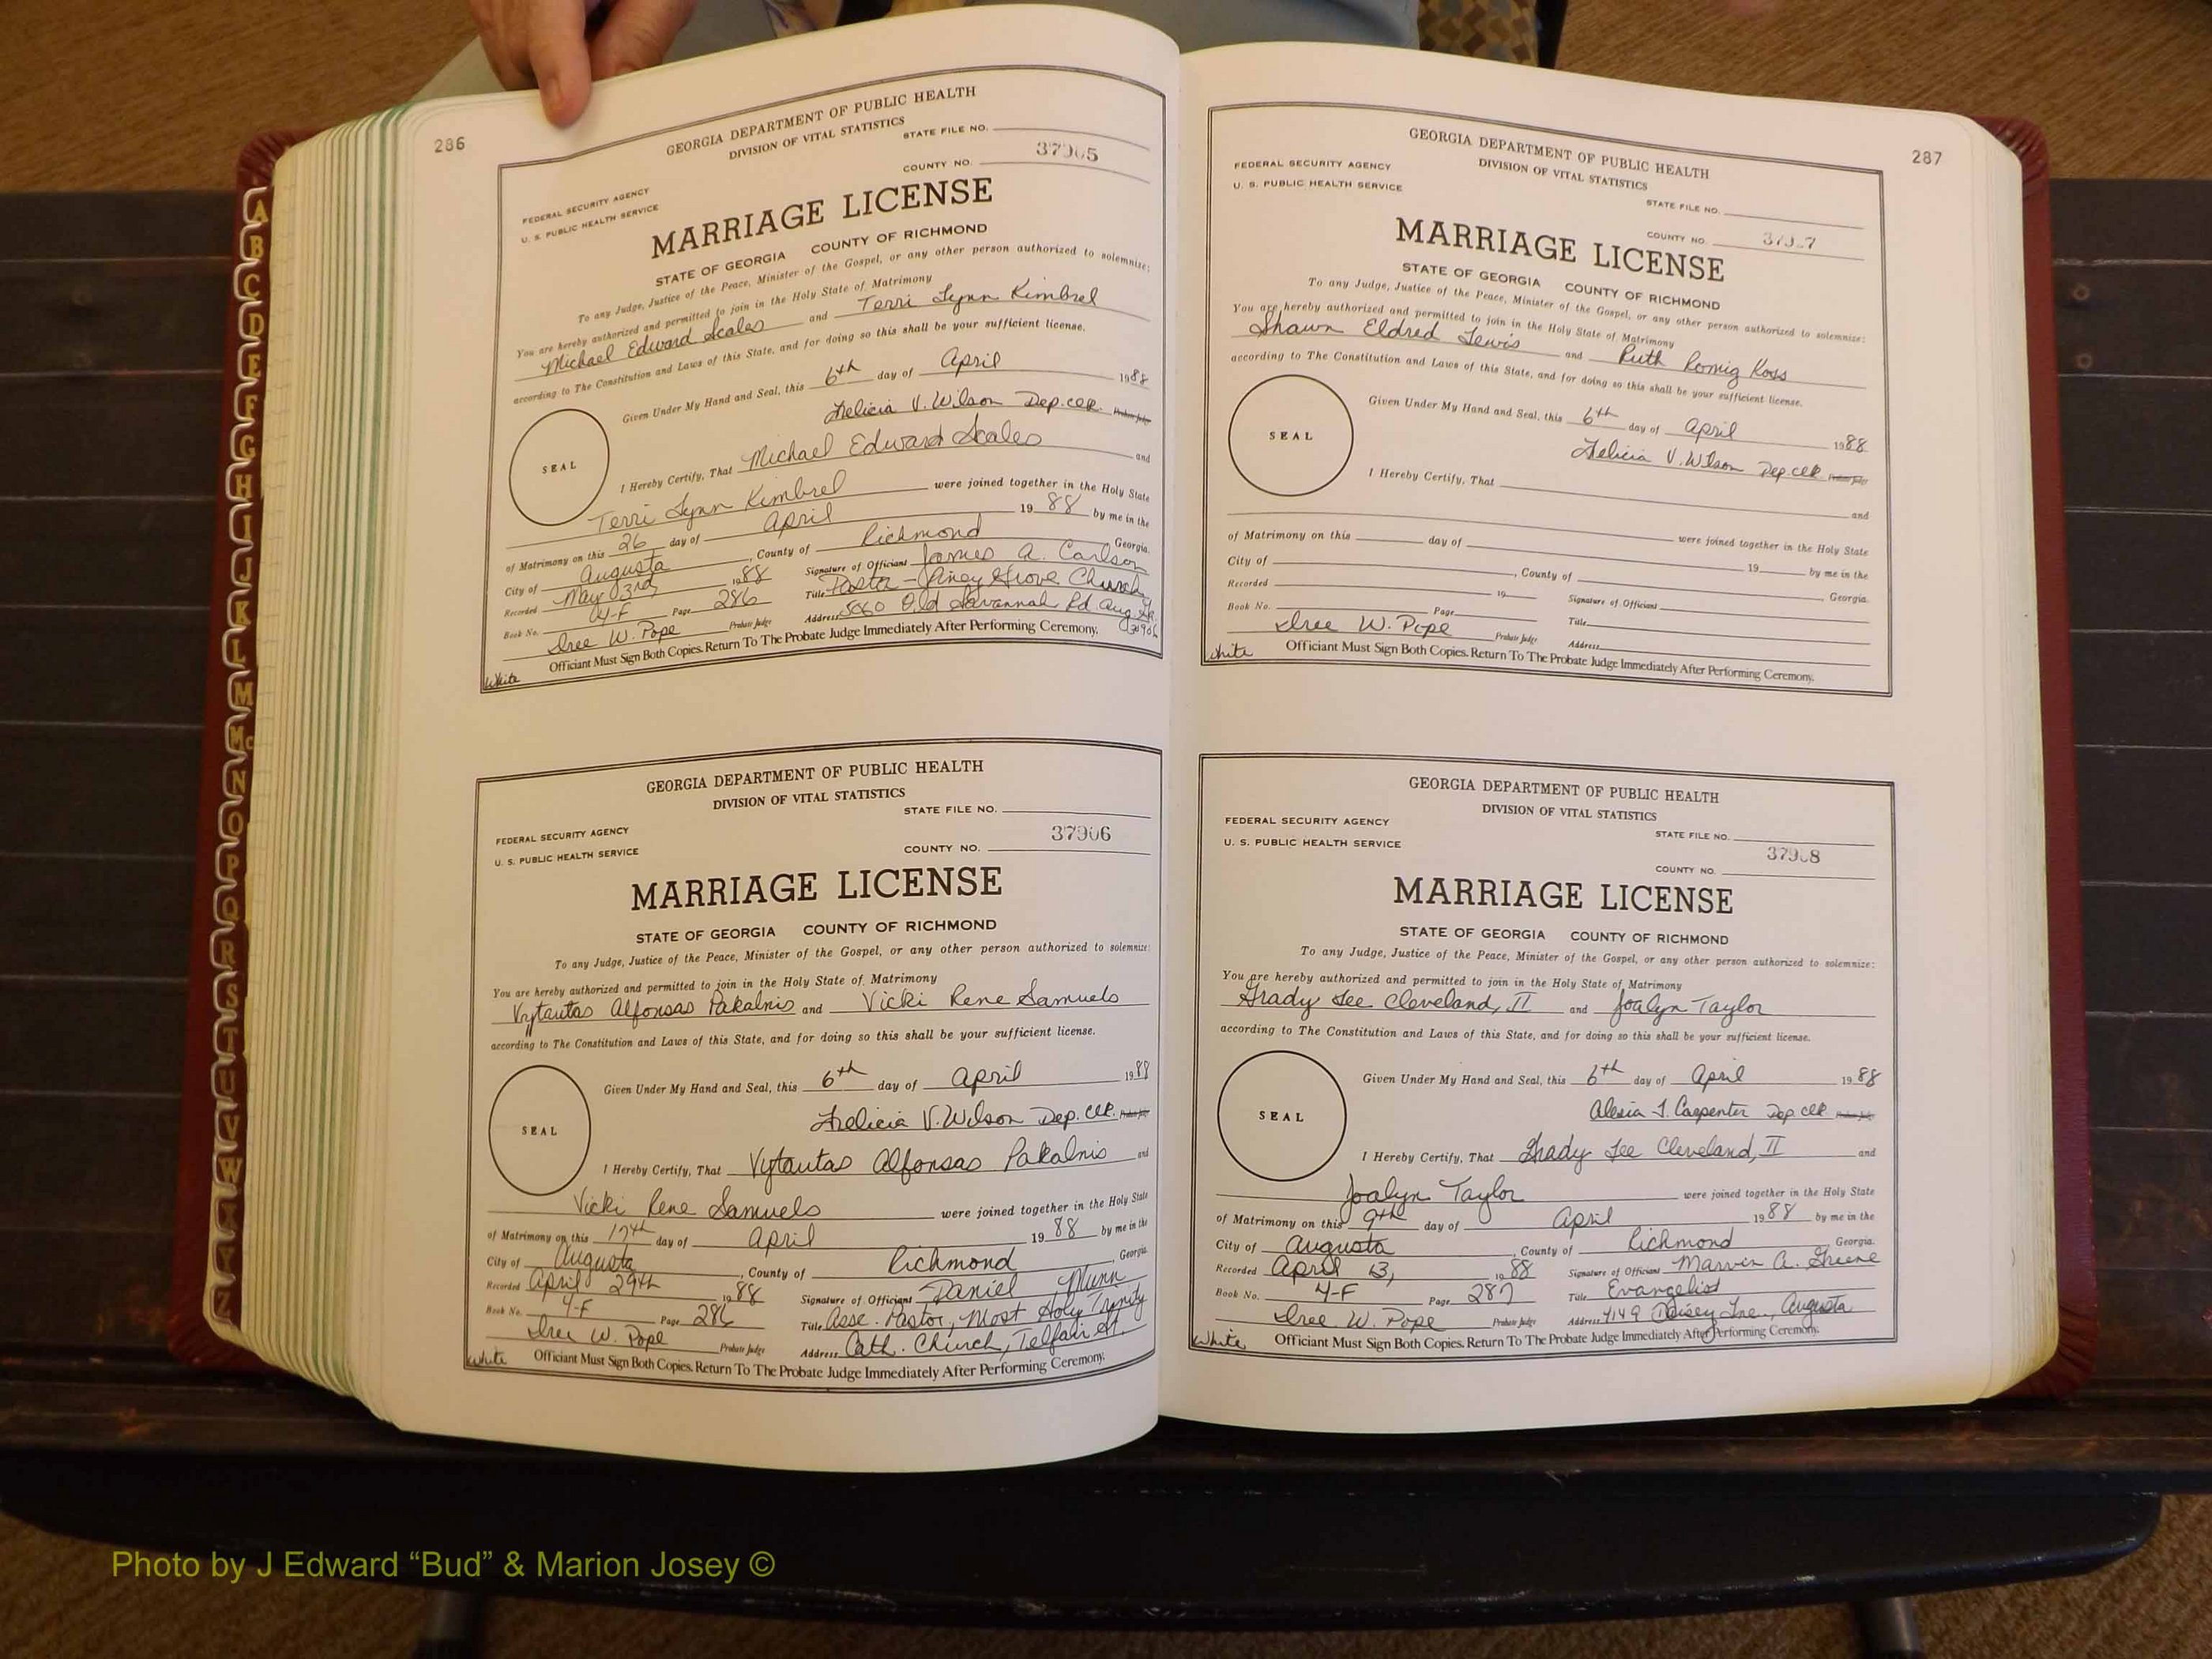 A
B
C
D
E
F
G
H
I
J
K
L
M
Mc
N
O
P
Q
R
S
T
U
V
W
Z
286
GEORGIA DEPARTMENT OF PUBLIC HEALTH
DIVISION OF VITAL STATISTICS
STATE FILE NO.
COUNTY NO. 37905
FEDERAL SECURITY AGENCY
U. S. PUBLIC HEALTH SERVICE
MARRIAGE LICENSE
STATE OF GEORGIA COUNTY OF RICHMOND
To any Judge, Justice of the Peace, Minister of the Gospel, or any other person authorized to solemnize:
You are hereby authorized and permitted to join in the Holy State of Matrimony
Michael Edward Scales and Terri Lynn Kimbrel
according to The Constitution and Laws of this State, and for doing so this shall be your sufficient license.
Given Under My Hand and Seal, this 6th day of April 1988
Felicia V. Wilson Dep. Clk. Probate Judge
SEAL
I Hereby Certify, That Michael Edward Scales and
Terri Lynn Kimbrel were joined together in the Holy State
of Matrimony on this 26 day of April 19 88 by me in the
City of Augusta, County of Richmond Georgia.
Recorded May 3rd 1988 Signature of Officiant James A. Carlson
Book No. 4-F Page 286 Title Pastor - Piney Grove Church
Iree W. Pope Probate Judge Address 3060 Old Savannah Rd. Aug. Ga. 30906
Officiant Must Sign Both Copies. Return To The Probate Judge Immediately After Performing Ceremony.
White
GEORGIA DEPARTMENT OF PUBLIC HEALTH
DIVISION OF VITAL STATISTICS
STATE FILE NO.
FEDERAL SECURITY AGENCY
37906
U. S. PUBLIC HEALTH SERVICE
COUNTY NO.
MARRIAGE LICENSE
STATE OF GEORGIA COUNTY OF RICHMOND
To any Judge, Justice of the Peace, Minister of the Gospel, or any other person authorized to solemnize:
You are hereby authorized and permitted to join in the Holy State of Matrimony
Vytautas Alfonsas Pakalnis and Vicki Rene Samuels
according to The Constitution and Laws of this State, and for doing so this shall be your sufficient license.
Given Under My Hand and Seal, this 6th day of April 1988
Felicia V. Wilson Dep. Clk. Probate Judge
SEAL
I Hereby Certify, That Vytautas Alfonsas Pakalnis and
Vicki Rene Samuels were joined together in the Holy State
of Matrimony on this 17th day of April 19 88 by me in the
City of Augusta, County of Richmond Georgia.
Recorded April 29th 1988 Signature of Officiant Daniel Munn
Book No. 4-F Page 286 Title Asse. Pastor, Most Holy Trinity
Iree W. Pope Probate Judge Address Cath. Church, Telfair St.
Officiant Must Sign Both Copies. Return To The Probate Judge Immediately After Performing Ceremony.
White
287
GEORGIA DEPARTMENT OF PUBLIC HEALTH
DIVISION OF VITAL STATISTICS
FEDERAL SECURITY AGENCY
U. S. PUBLIC HEALTH SERVICE
STATE FILE NO.
COUNTY NO. 37907
MARRIAGE LICENSE
STATE OF GEORGIA COUNTY OF RICHMOND
To any Judge, Justice of the Peace, Minister of the Gospel, or any other person authorized to solemnize:
You are hereby authorized and permitted to join in the Holy State of Matrimony
Shawn Eldred Lewis and Ruth Romig Ross
according to The Constitution and Laws of this State, and for doing so this shall be your sufficient license.
Given Under My Hand and Seal, this 6th day of April 1988
Felicia V. Wilson Dep. Clk. Probate Judge
SEAL
I Hereby Certify, That
and
were joined together in the Holy State
of Matrimony on this day of 19 by me in the
City of , County of Georgia.
Recorded 19 Signature of Officiant
Book No. Page Title
Iree W. Pope Probate Judge Address
Officiant Must Sign Both Copies. Return To The Probate Judge Immediately After Performing Ceremony.
White
GEORGIA DEPARTMENT OF PUBLIC HEALTH
DIVISION OF VITAL STATISTICS
FEDERAL SECURITY AGENCY
U. S. PUBLIC HEALTH SERVICE
STATE FILE NO.
37908
COUNTY NO.
MARRIAGE LICENSE
STATE OF GEORGIA COUNTY OF RICHMOND
To any Judge, Justice of the Peace, Minister of the Gospel, or any other person authorized to solemnize:
You are hereby authorized and permitted to join in the Holy State of Matrimony
Grady Lee Cleveland, II and Joalyn Taylor
according to The Constitution and Laws of this State, and for doing so this shall be your sufficient license.
Given Under My Hand and Seal, this 6th day of April 1988
Alesia J. Carpenter Dep. Clk Probate Judge
SEAL
I Hereby Certify, That Grady Lee Cleveland, II and
Joalyn Taylor were joined together in the Holy State
of Matrimony on this 9th day of April 1988 by me in the
City of Augusta, County of Richmond Georgia.
Recorded April 13, 1988 Signature of Officiant Marvin A. Greene
Book No. 4-F Page 287 Title Evangelist
Iree W. Pope Probate Judge Address 4149 Daisey Lne., Augusta
Officiant Must Sign Both Copies. Return To The Probate Judge Immediately After Performing Ceremony.
White
Photo by J Edward “Bud” & Marion Josey ©